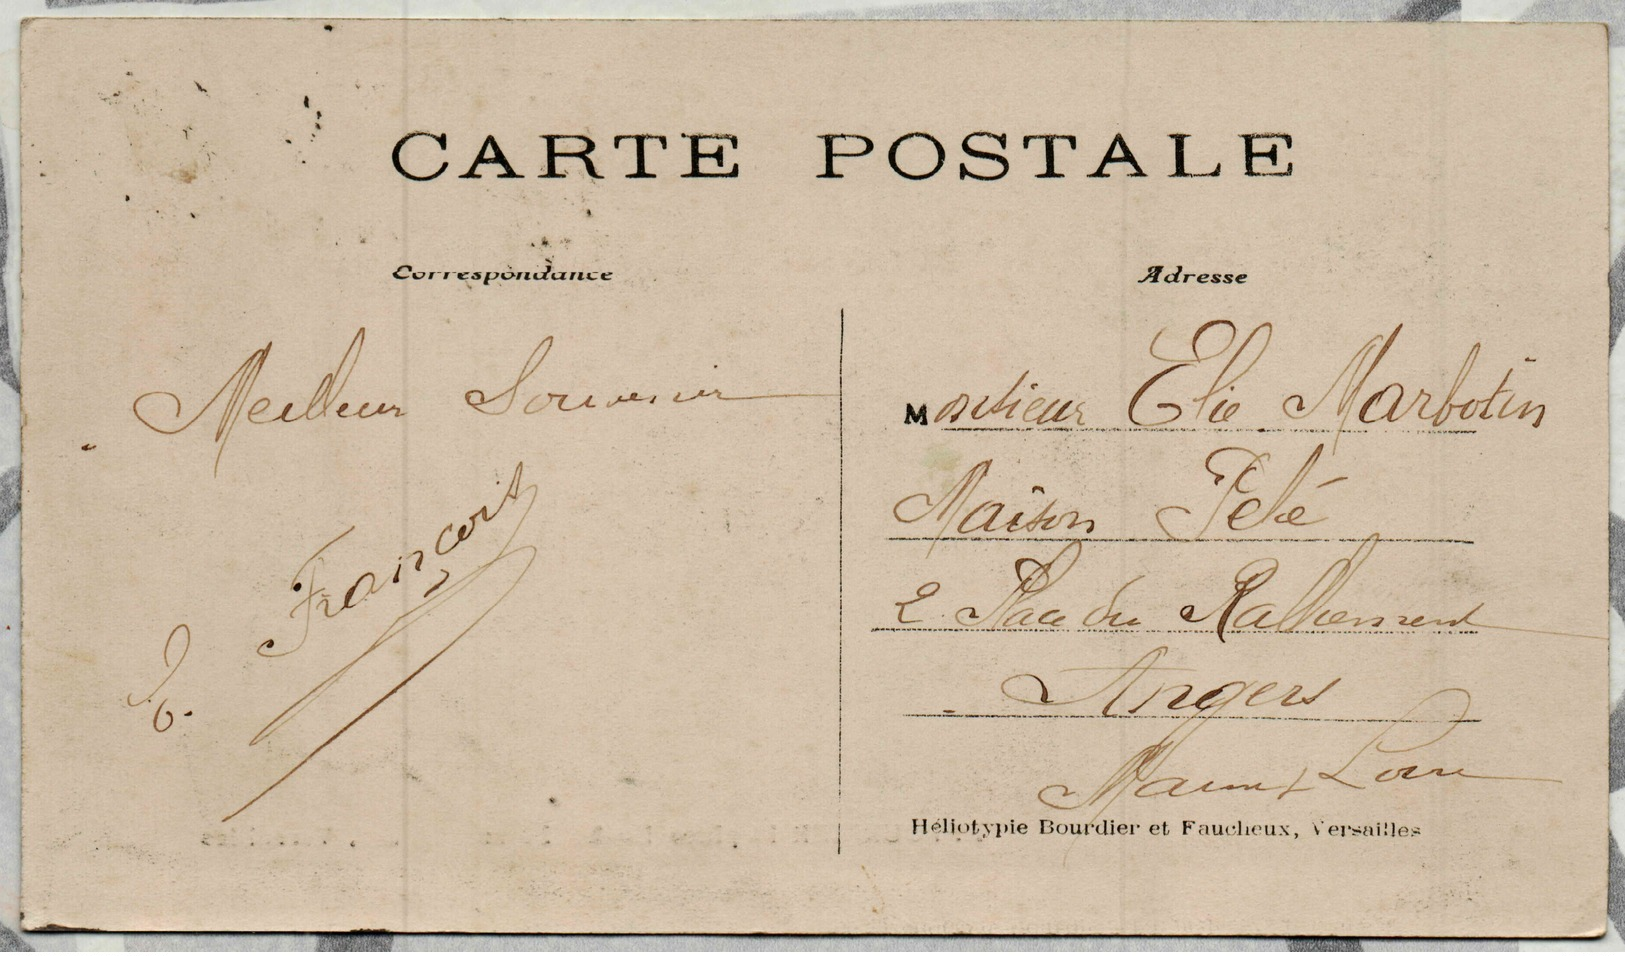 CARTE POSTALE
Correspondance
Meilleur Souvenir
François
Adresse
Monsieur Elie Marbotin
Maison
2 Place du Ralliement
Angers
Maine & Loire
Héliotypie Bourdier et Faucheux, Versailles